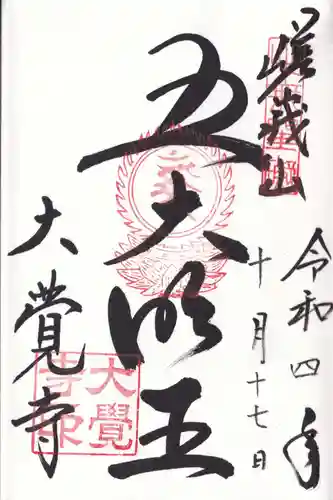 嵯峨山
令和四年
十月十七日
五大明王
大覺寺
大覺寺印